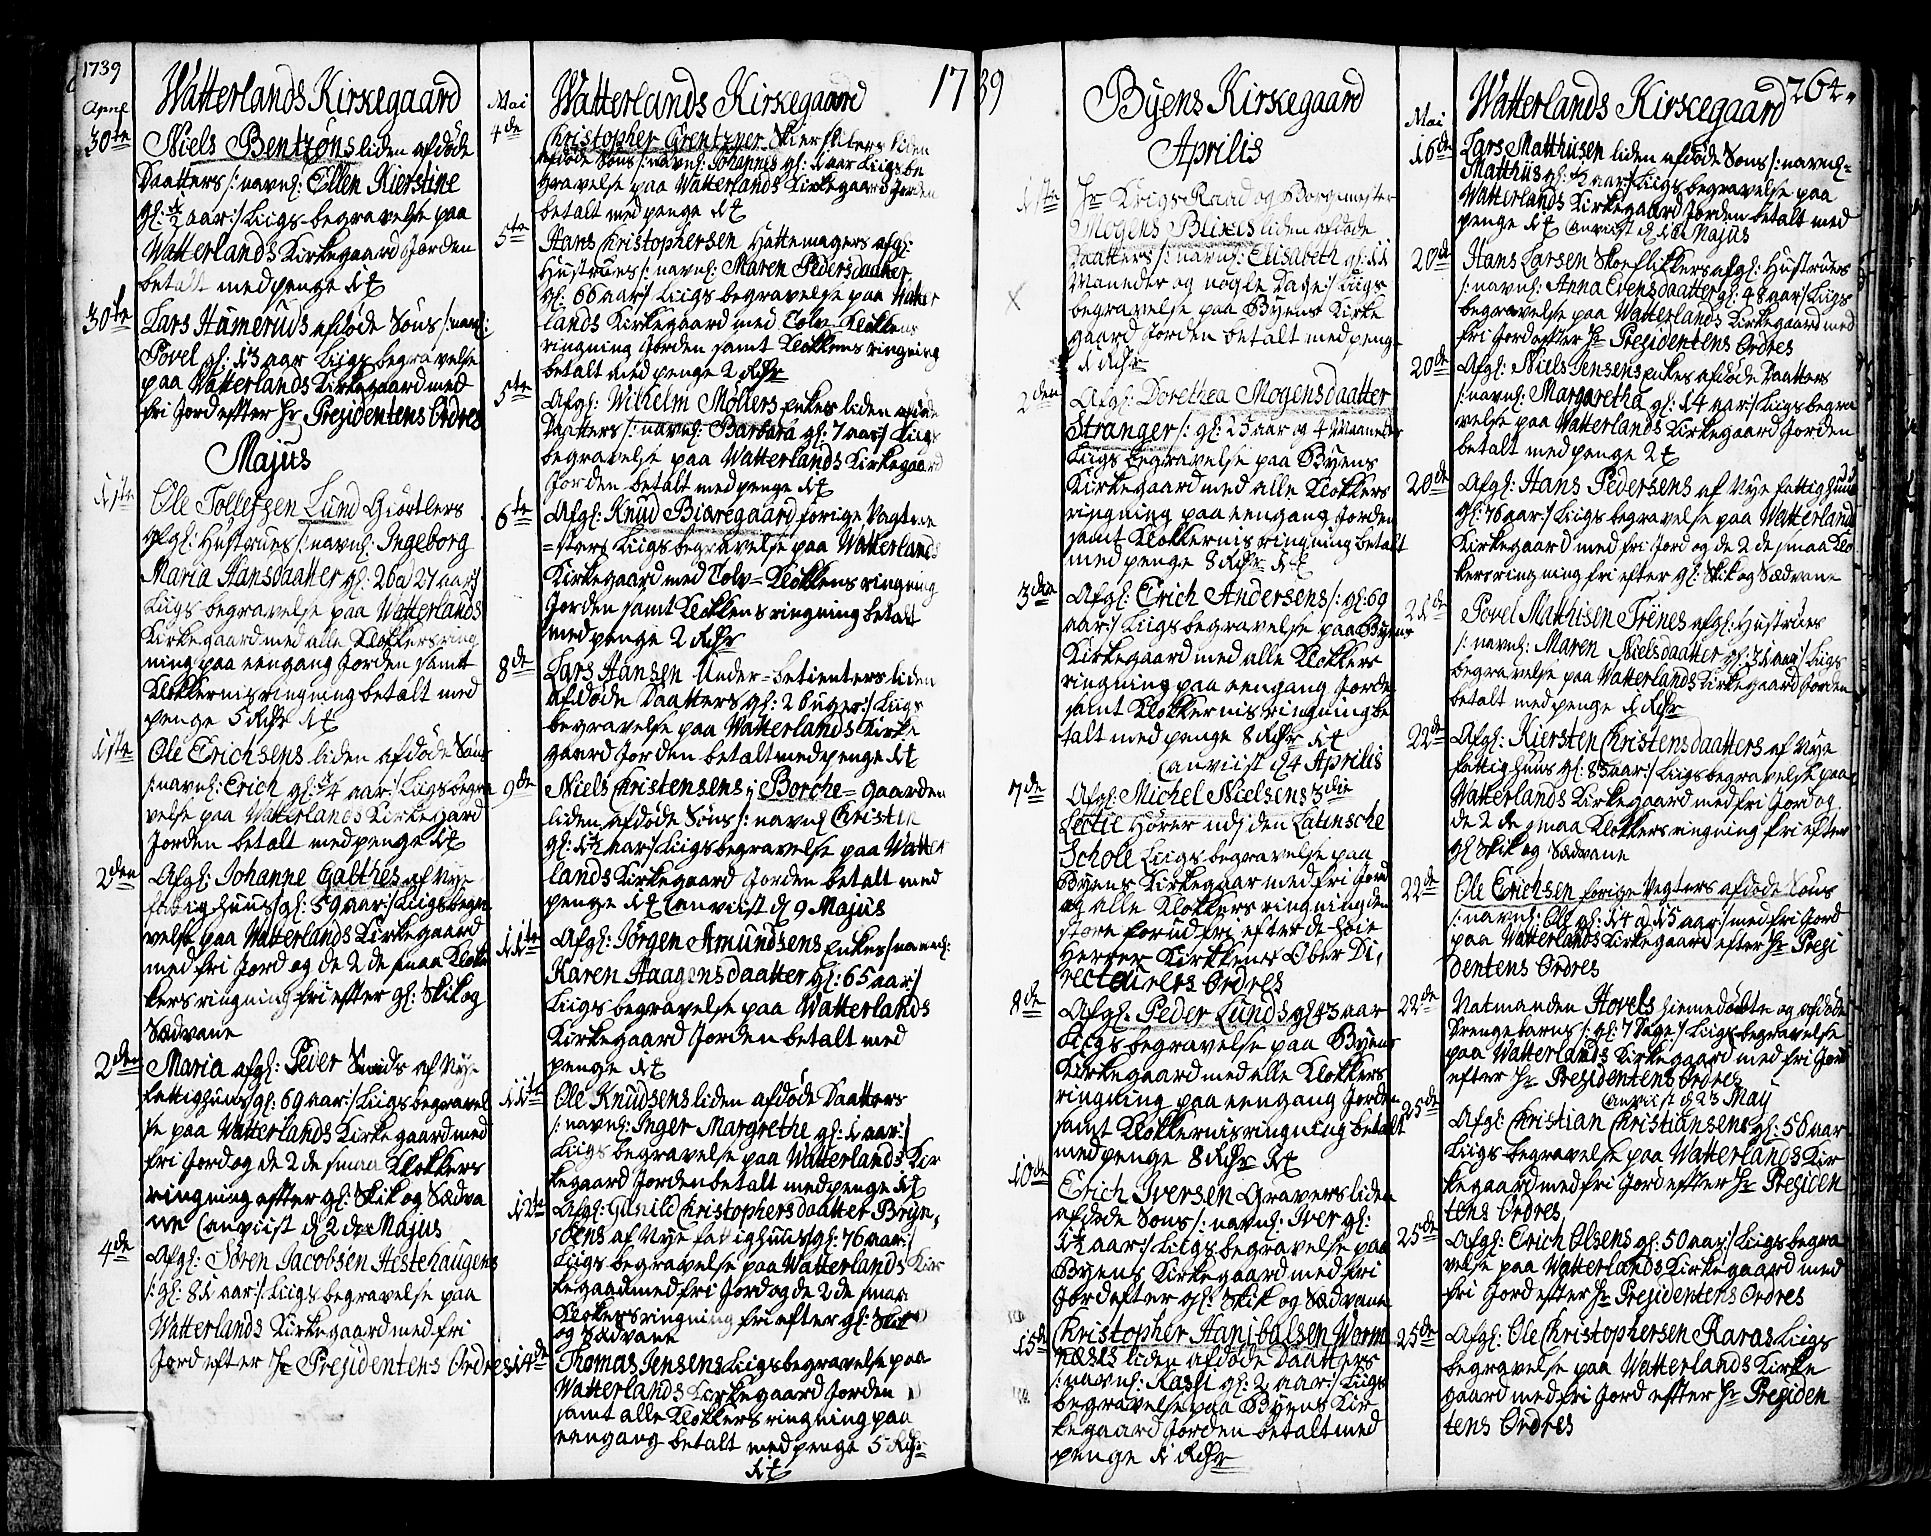 1739
April
Watterlands Kirkegaard
30te
Niels Bentzøns liden afdøde
Daatters /: navnl: Ellen Kierstine
gl: ½ aar :/ Liigs-begravelse paa
Watterlands Kirkegaard Jorden
betalt med penge 1 ꝶ
30te
Lars Hameruds afdøde Søns /: navnl:
Povel gl: 13 aar Liigs begravelse
paa Watterlands Kirkegaard med
fri Jord efter Hr Presidentens Ordres
Majus
11te
Ole Tollefsen Lund Giørtlers
afgl: Hustrues /: navnl: Ingeborg
Maria Hansdaatter gl: 26 a 27 aar :/
Liigs begravelse paa Watterlands
Kirkegaard med alle Klokkers ring
ning paa eengang Jorden samt
Klokkernis ringning betalt med
penge 5 Rdr 1 ꝶ
11te
Ole Erichsens liden afdøde Søns
/: navnl: Erich gl: ¾ aar :/ Liigs begra
velse paa Watterlands Kirkegard
Jorden betalt med penge 1 ꝶ
2den
Afgl: Johanne Gabthes af Nye
fattighuus /gl: 59 aar :/ Liigs begra
velse paa Watterlands Kirkegaard
med fri Jord og de 2de smaa Klok
kers ringning fri efter gl: Skik og
Sædvane
2den
Maria afgl: Peder Smids af Nye
fattighuus gl: 69 aar :/ Liigs begravel
se paa Watterlands Kirke gaard med
fri Jord og de 2de smaa Klokkers
ringning efter gl: Skik og Sædva
ne Canviist d 2de Majus
4de
Afgl: Søren Jacobsen Hestehaugens
/: gl: 81 aar :/: Liigs begravelse paa
Watterlands Kirkegaard med fri
Jord efter Hr Presidentens Ordres
Mai
Watterlands Kirkegaard
17
4de
Christopher Grentzner Skierslibers liden
afdøde Søns /: navnl: Johannes gl: 1 aar Liigs be
gravelse paa Watterlands Kirkegaard Jorden
betalt med penge 1 ꝶ
5te
Hans Christophersen Hattemagers afgl:
Hustrues /: navnl: Maren Pedersdaatter
gl: 66 aar :/ Liigs begravelse paa Watter
lands Kirkegaard med Tolv-Klokkens
ringning Jorden samt Klokkens ringning
betalt med penge 2 Rdr
5te
Afgl: Wilhelm Møllers Enkes liden afdøde
Daatters /: navnl: Barbara gl: 7 aar :/ Liigs
begravelse paa Watterlands Kirkegaard
Jorden betalt med penge 1 ꝶ
6te
Afgl: Knud Biøregaard forige Vagtme
=sters Liigs begravelse paa Watterlands
Kirkegaard med Tolv=Klokkens ringning
Jorden samt Klokkens ringning betalt
med penge 2 Rdr
8de
Lars Hansen Under=betienters liden
afdøde Daatters gl: 2 Uger :/ Liigs
begravelse paa Watterlands Kirke
gaard Jorden betalt med penge 1 ꝶ
9de
Niels Christensens i Borche=gaarden
liden afdøde Søns /: navnl: Christin
gl: 1½ aar :/ Liigs begravelse paa Watter
lands Kirkegaard Jorden betalt med
penge 1 ꝶ Canviist d 9 Majus
11te
Afgl: Jørgen Amundsens Enkes /: navnl:
Karen Haagensdaatter gl: 65 aar :/
Liigs begravelse paa Watterlands
Kirkegaard Jorden betalt med
penge 1 ꝶ
11te
Ole Knudsens liden afdøde Daatters
/: navnl: Inger Margrethe gl: 1 aar :/
Liigs begravelse paa Watterlands Kir
kegaard Jorden betalt med penge 1 ꝶ
12te
Afgl: Gunild Christophersdaatter Bryn,
ildens af Nye fattighuus /gl: 76 aar :/
Liigs begravelse paa Watterlands Kir
kegaard med fri Jord og de 2de smaa
Klokkers ringning fri efter gl: Skik
og Sædvane
14de
Thomas Jensens Liigs begravelse paa
Watterlands Kirkegaard Jorden
samt alle Klokkers ringning paa
eengang betalt med penge 5 Rdr
1 ꝶ
39
Byens Kirkegaard
Aprilis
11te
Hr Krigs Raad og Borgemester
Mogens Blixes liden afdøde
Daatters /: navnl: Elisabeth gl: 11
Maaneder og nogle Dage :/ Liigs
begravelse paa Byens Kirke
gaard Jorden betalt med penge
1 Rdr
2den
Afgl: Dorethea Mogensdaatter
Stranger /: gl: 25 aar og 4 Maaneder
Liigs begravelse paa Byens
Kirkegaard med alle Klokkers
ringning paa eengang Jorden
samt Klokkernis ringning betalt
med penge 8 Rdr 1 ꝶ
3den
Afgl: Erich Andersens /: gl: 69
aar :/ Liigs begravelse paa Byens
Kirkegaard med alle Klokkers
ringning paa eengang Jorden
samt Klokkernis ringning be
talt med penge 8 Rdr 1 ꝶ
Canviist d 4 Aprilis
7de
Afgl: Michel Nielsens 3die
Lectie Hører udi den Latinsche
Schole Liigs begravelse paa
Byens Kirkegaar med fri Jord
og alle Klokkers ringning den
store forud fri efter de Høie
Herrer Kirkens Ober Di,
recteurers Ordres
8de
Afgl: Peder Lunds gl 43 aar
Liigs begravelse paa Byens
Kirkegaard med alle Klokkers
ringning paa eengang Jorden
samt Klokkernis ringning betalt
med penge 8 Rdr 1 ꝶ
10de
Erich Iversen Gravers liden
afdøde Søns /: navnl: Iver gl:
1½ aar :/ Liigs begravelse paa
Byens Kirkegaard med fri
Jord efter gl: Skik og Sædvane
15de
Christopher Hanibalsen Worm
næses liden afdøde Daatters
/: navnl: Kassi gl: 2 aar :/ Liigs
begravelse paa Byens Kir
kegaard Jorden betalt med
penge 1 Rdr
Mai
Watterlands Kirkegaard
264.
16de
Lars Matthisen liden afdøde Søns /: navnl=
Matthiis gl: ½ aar :/ Liigs begravelse paa
Watterlands Kirkegaard Jorden betalt med
penge 1 ꝶ Canviist d 16 Majus
20de
Hans Larsen Skoeflikkers afgl: Hustrues
/: navnl: Anna Evensdaatter gl: 48 aar :/ Liigs
begravelse paa Watterlands Kirkegaard med
fri Jord efter Hr Presidentens Ordres
20de
Afgl: Niels Jensens Enkes afdøde Daatters
/: navnl: Margaretha gl: 14 aar :/ Liigs begra
velse paa Watterlands Kirkegaard Jorden
betalt med penge 2 ꝶ
20de
Afgl: Hans Pedersens af Nye fattighuus
gl: 76 aar :/ Liigs begravelse paa Watterlands
Kirkegaard med fri Jord og de 2de smaa Klo
kers ringning fri efter gl: Skik og Sædvane
21de
Povel Mathisen Frénes afgl: Hustrues
/: navnl: Maren Nielsdaatter gl: 31 aar :/ Liigs
begravelse paa Watterlands Kirkegaard Jorden
betalt med penge 1 Rdr
22de
Afgl: Kiersten Christensdaatters af Nye
fattighuus gl: 83 aar :/ Liigs begravelse paa
Watterlands Kirkegaard med fri Jord og
de 2de smaa Klokkers ringning fri efter
gl Skik og Sædvane
22de
Ole Erichsen forige Vegters afdøde Søns
/: navnl: Ole gl: 14 a 15 aar :/ med fri Jord
paa Watterlands Kirkegaard efter Hr Presi
dentens Ordres
22de
Natmanden Hovels hiemedøbte og afdøde
Drengebarns /: gl: 7 Dage :/ Liigs begravelse
paa Watterlands Kirkegaard med fri Jord
efter Hr Presidentens Ordres
Canviist d 23 Maij
25de
Afgl: Christian Christiansens gl: 56 aar
Liigs begravelse paa Watterlands Kir
kegaard med fri Jord efter Hr Presiden
tens Ordres
25de
Afgl: Erich Olsens gl: 50 aar :/ Liigs begra
velse paa Watterlands Kirkegaard med
fri Jord efter Hr Presidentens Ordres
25de
Afgl: Ole Christophersen Karas Liigs
begravelse paa Watterlands Kirke
gaard med fri Jord efter Hr Presiden
tens Ordres